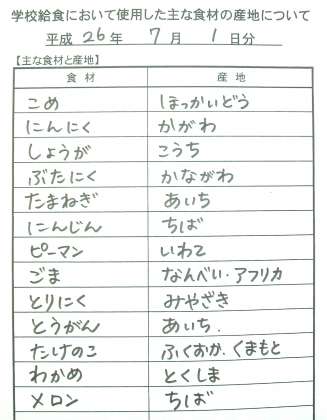 学校給食において使用した主な食材の産地について
平成 26 年 7 月 1 日分
【主な食材と産地】
食材 産地
こめ ほっかいどう
にんにく かがわ
しょうが こうち
ぶたにく かながわ
たまねぎ あいち
にんじん ちば
ピーマン いわて
ごま なんべい・アフリカ
とりにく みやざき
とうがん あいち.
たけのこ ふくおか、くまもと
わかめ とくしま
メロン ちば